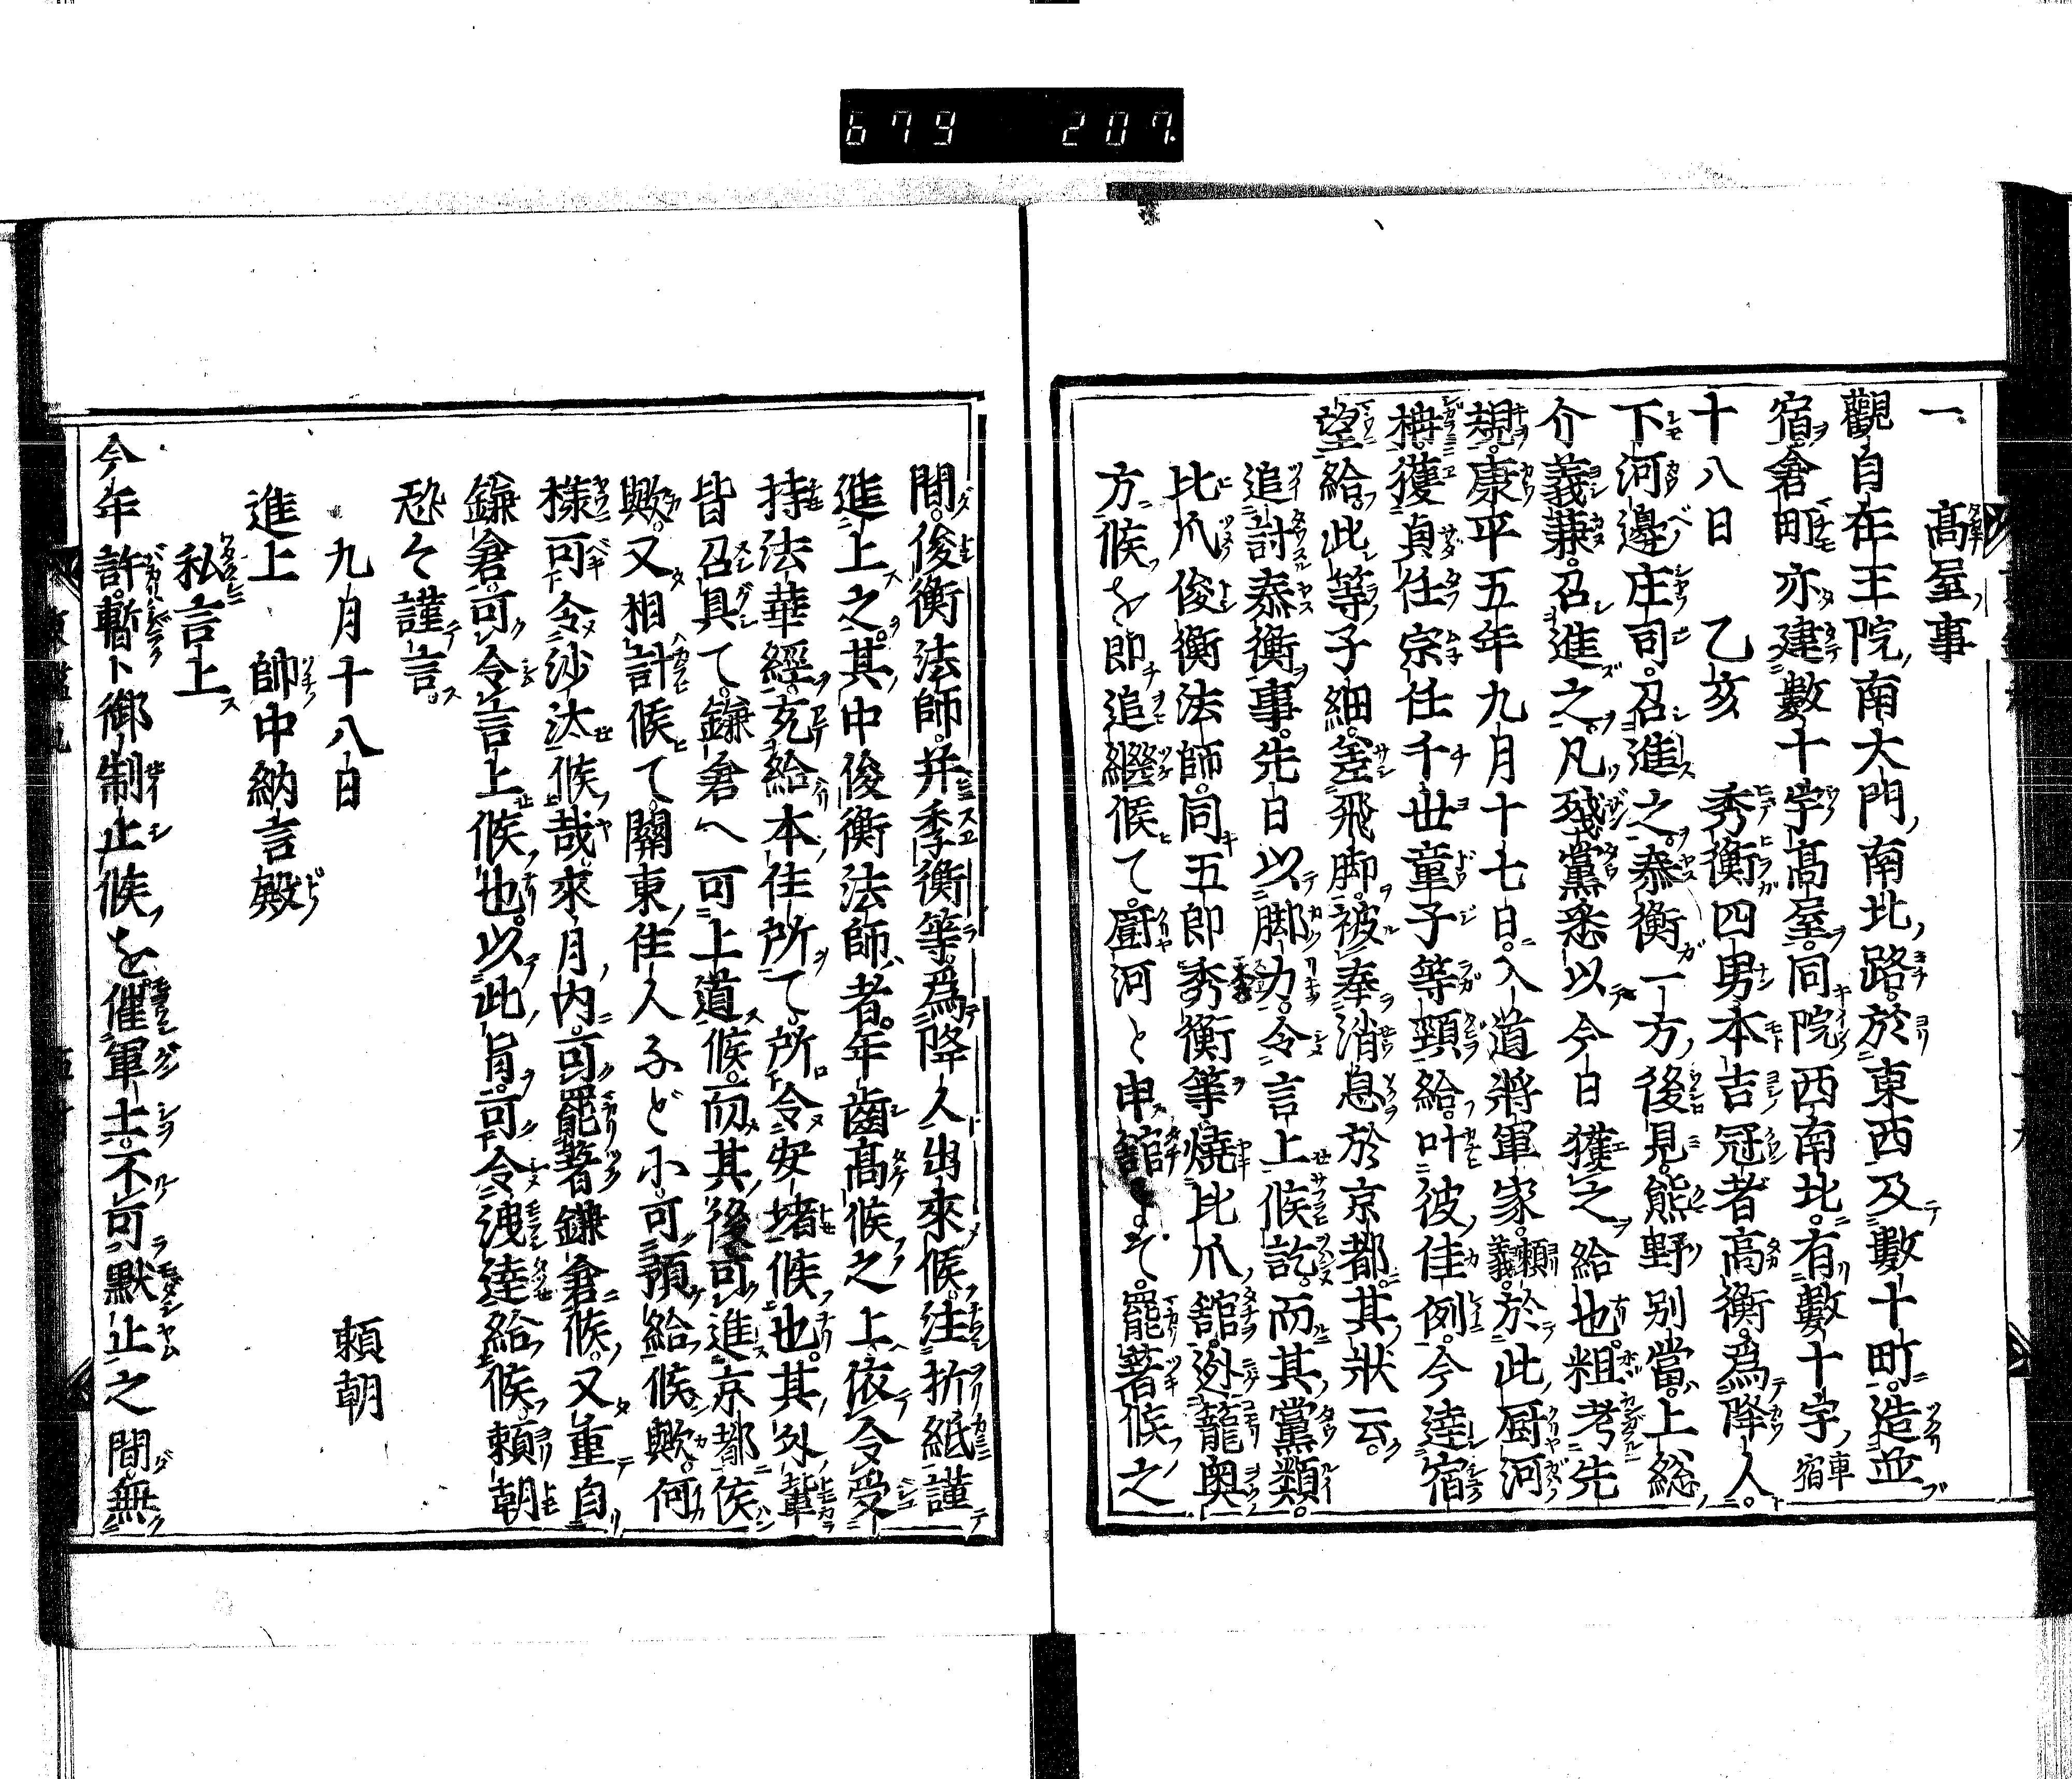 679 207
一 髙屋事
觀自在王院南大門南北路於東西及數十町造並
宿倉町亦建數十宇髙屋同院西南北有數十宇車宿
十八日 乙亥 秀衡四男本吉冠者高衡為降人
下河邊庄司召進之泰衡一方後見熊野別當上総
介義兼召進之凡殘黨悉以今日獲之給也粗考先
規康平五年九月十七日入道將軍家賴義於此厨河
柵獲貞任宗任千世童子等頸給叶彼佳例今達宿
望給此等子細差飛脚被奉消息於京都其狀云
追討泰衡事先日以脚力令言上候訖而其黨類
比爪俊衡法師同五郎秀衡等燒比爪舘迯籠奥
方候を即追繼候て厨河と申舘まて罷著候之
間俊衡法師并季衡等為降人出來候注折紙謹
進上之其中俊衡法師者年齒髙候之上依令受
持法華經充給本住所て所令安堵候也其外輩
皆召具て鎌倉へ可上道候而其後可進京都候
歟又相計候て關東住人などに可預給候歟何
樣可令沙汰候哉來月內可罷著鎌倉候又重自
鎌倉可令言上候也以此旨可令洩達給候賴朝
恐々謹言
九月十八日 賴朝
進上 帥中納言殿
私言上
今年許暫卜御制止候を催軍士不可默止之間無